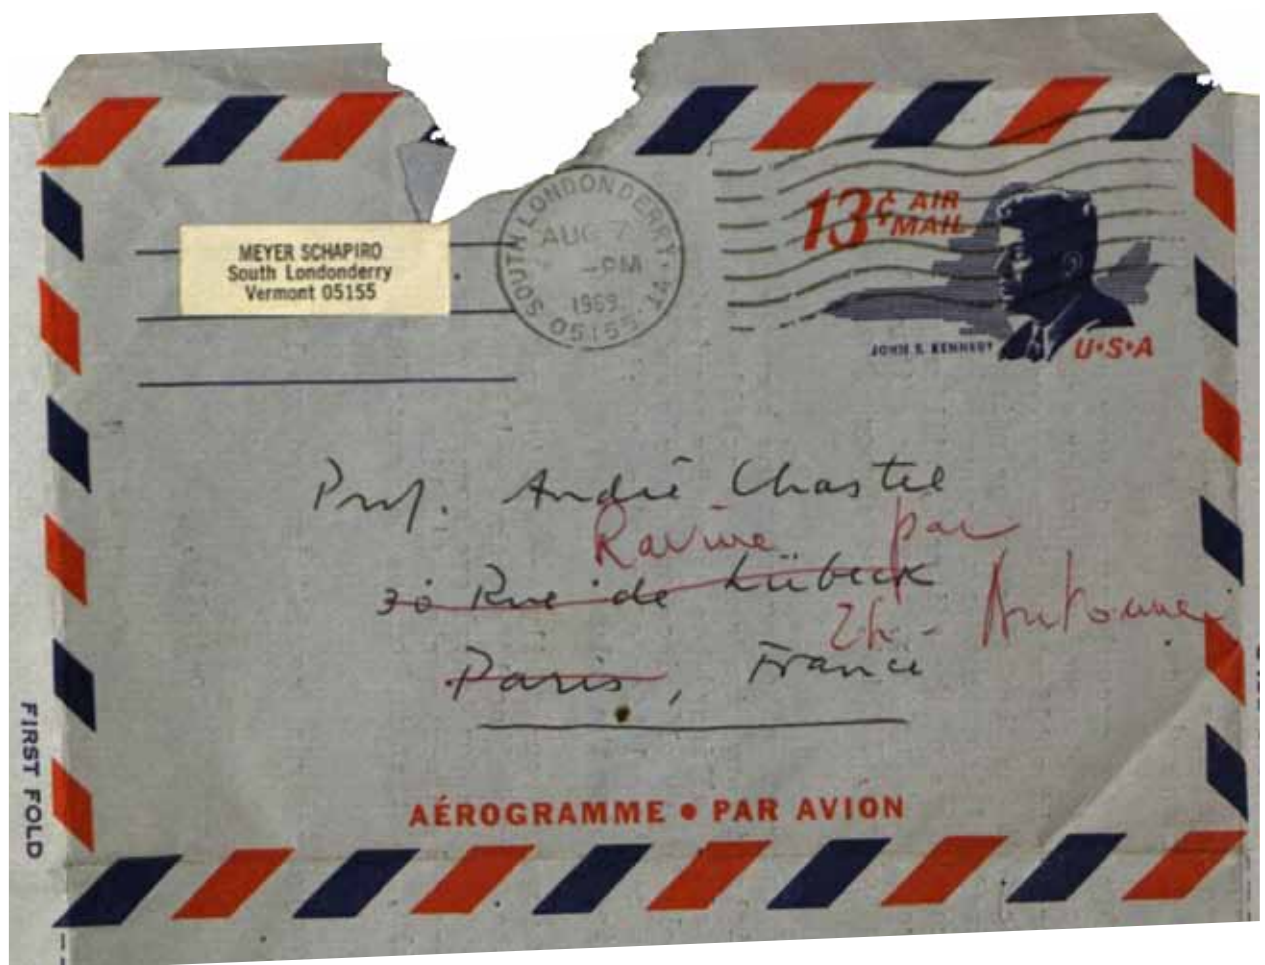 MEYER SCHAPIRO
South Londonderry
Vermont 05155
SOUTH LONDONDERRY·VT
AUG 7
-PM
1969
05155
13¢ AIR MAIL
JOHN F. KENNEDY
U·S·A
Prof. André Chastel
Ravine par
30 Rue de Lübeck
24 - Antoune
Paris, France
AÉROGRAMME • PAR AVION
FIRST FOLD